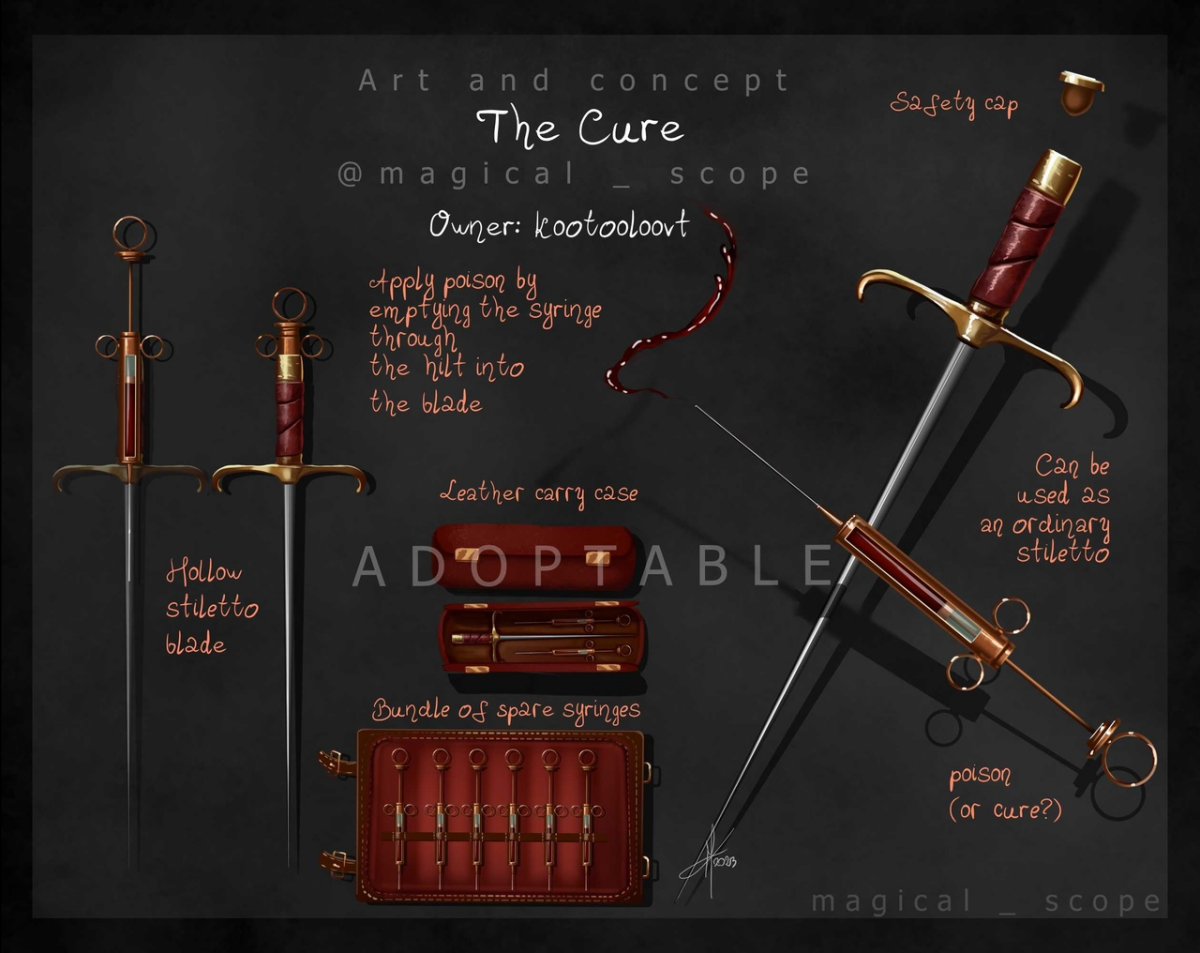 Art and concept
The Cure
@magical_scope
Owner: kootooloovt
Safety cap
Apply poison by
emptying the syringe
through
the hilt into
the blade
Leather carry case
Can be
used as
an ordinary
stiletto
ADOPTABLE
Hollow
stiletto
blade
Bundle of spare syringes
poison
(or cure?)
2023
magical_scope